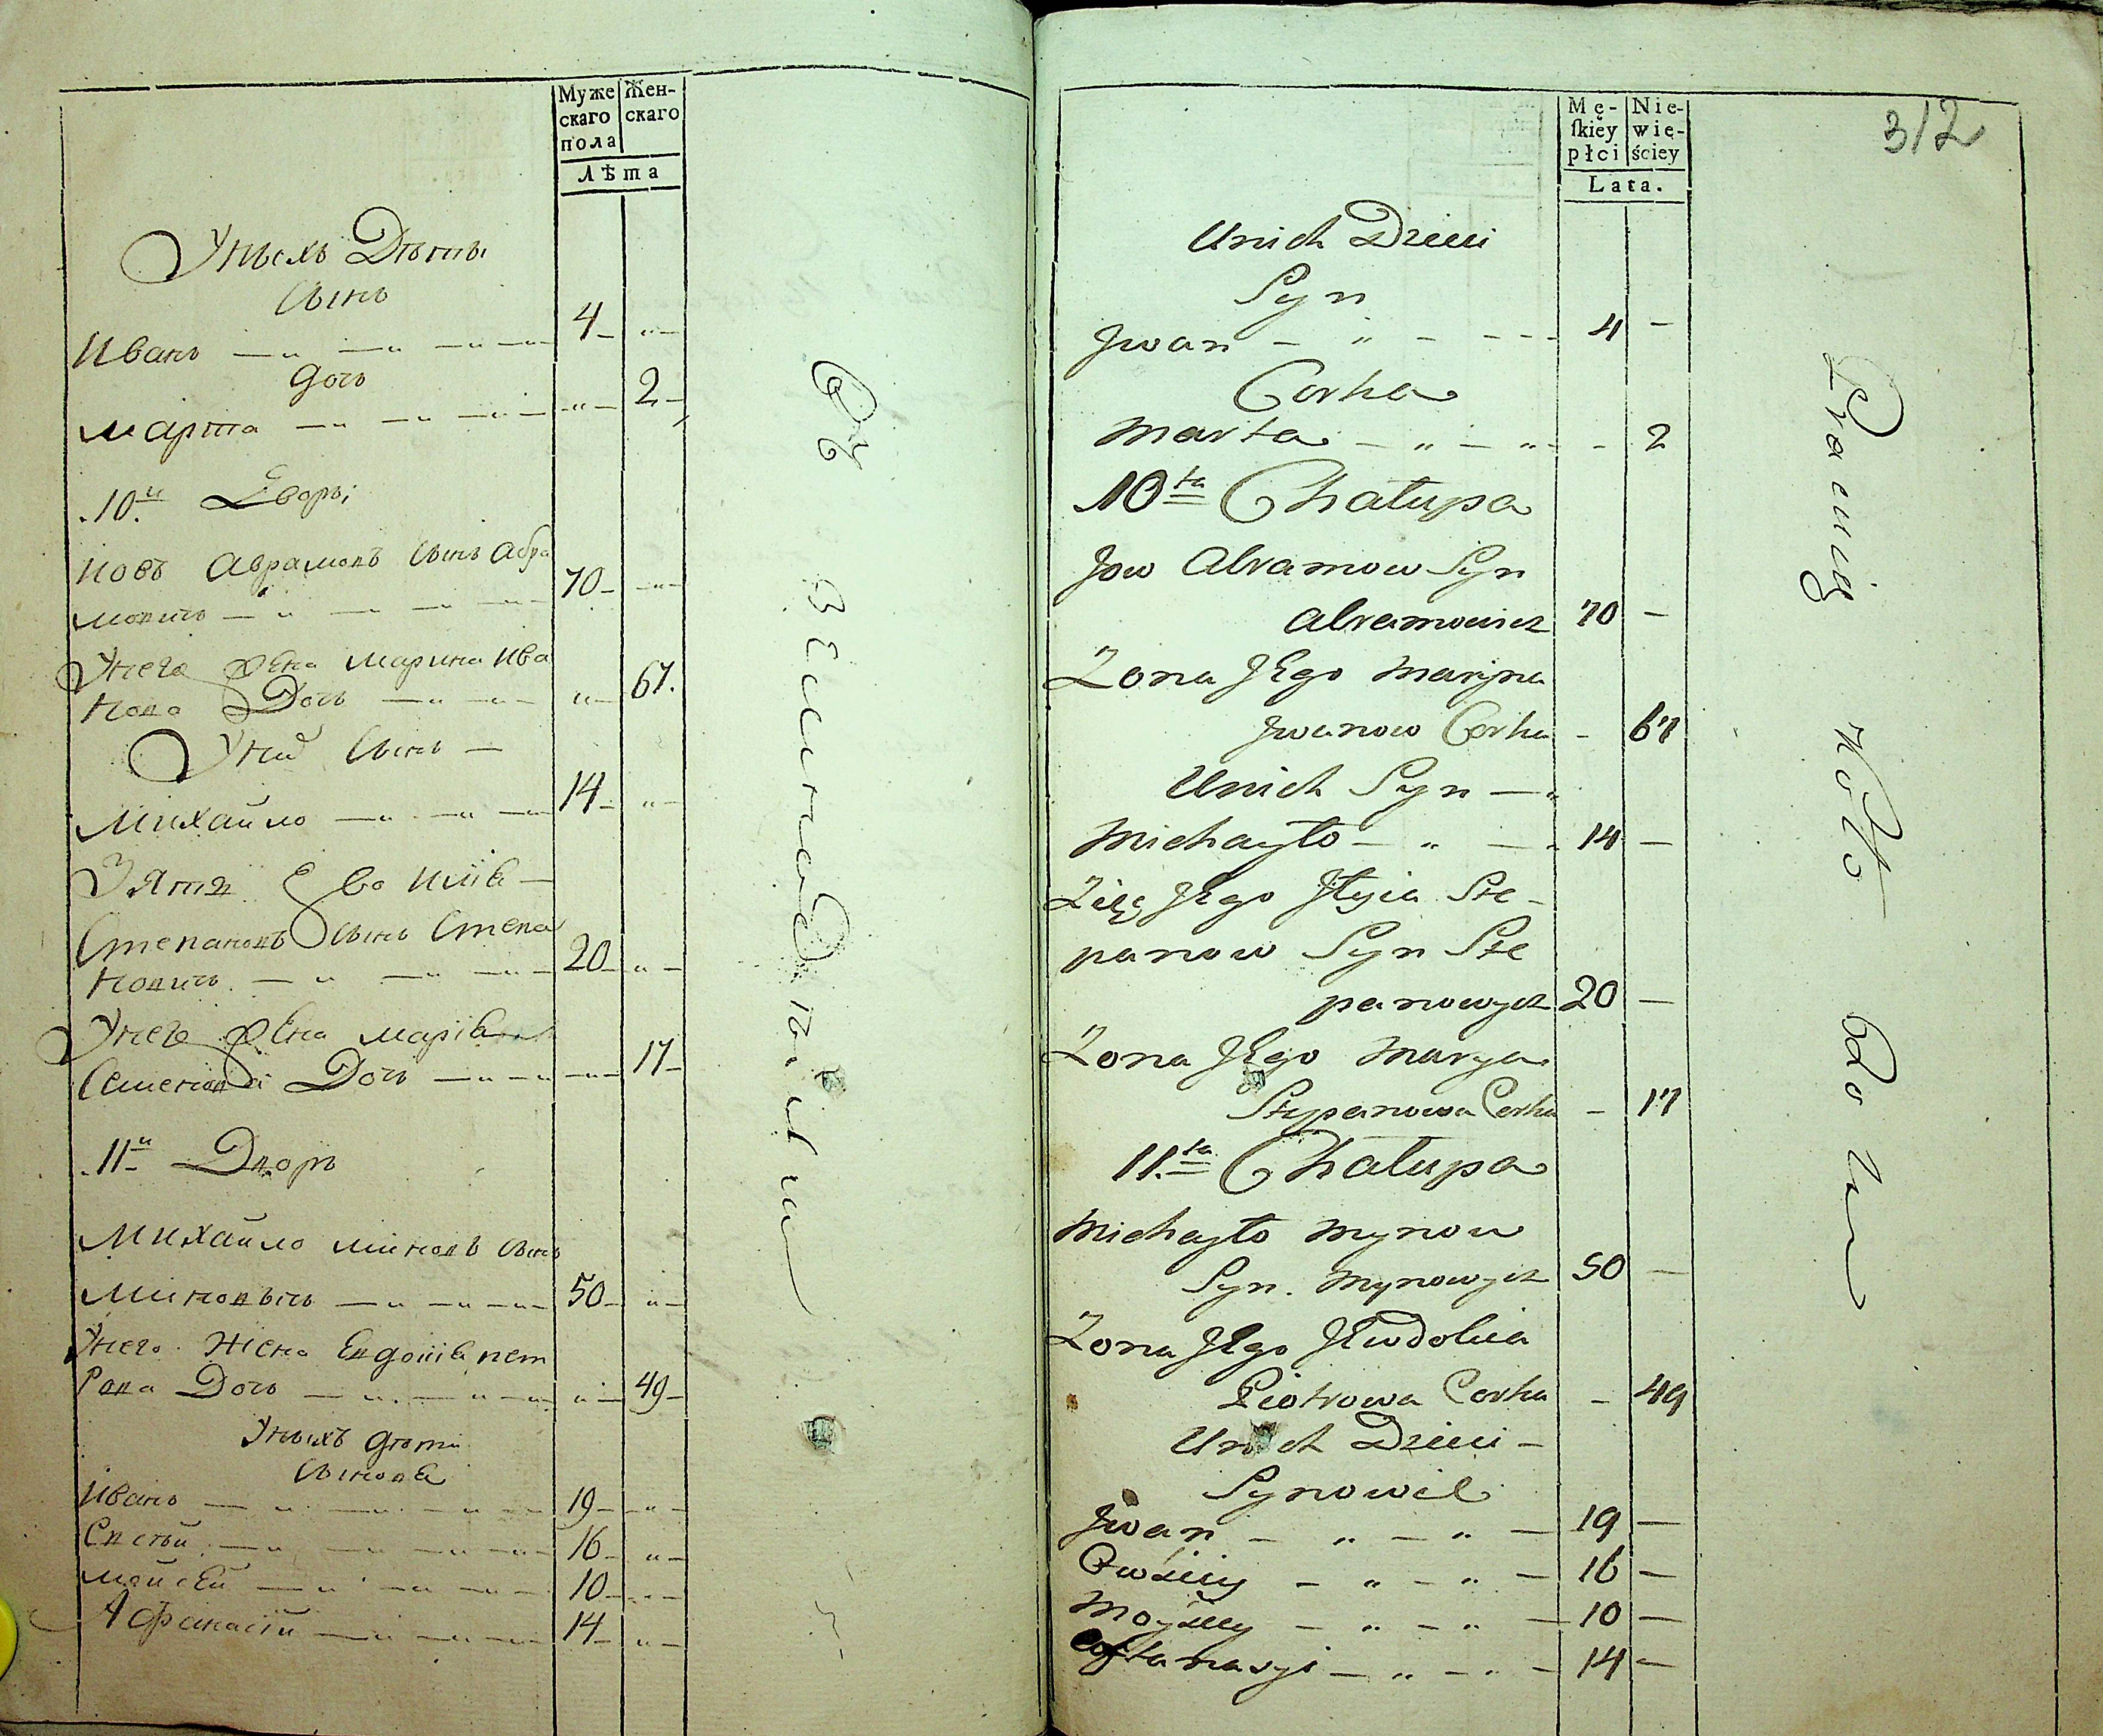 Муже
скаго
пола
Жен-
скаго
Лѣта
Унихъ Дѣти
Сынъ
Иванъ — „ — „ — „ — 4 — „ —
Дочь
Марта — „ — „ — „ — „ — 2 —
10й Дворъ
Иовъ Аврамовъ Сынъ Авра
мовичъ — „ — — — „ — 70 — „ —
Унего Жена Марина Ива
нова Дочь — „ — „ — „ — 67.
Унихъ Сынъ —
Михайло — „ — „ — 14 — „ —
Зять Ево Илія —
Степановъ Сынъ Степа
новичъ — „ — „ — „ — 20 — „ —
Унего Жена Марія
Семенова Дочь — „ — „ — „ — 17 —
11й Дворъ
Михайло Миновъ Сынъ
Миновычъ — „ — „ — „ — 50 — „ —
Унего Жена Евдокія Пет
рова Дочь — „ — „ — „ — 49 —
Унихъ Дѣти
Сынова
Иванъ — „ — „ — „ — 19 — „ —
Евсѣй — „ — „ — „ — 16 — „ —
Мойсей — „ — „ — „ — 10 — „ —
Афанасій — „ — „ — „ — 14 — „ —
Объ
312
Mę-
ſkiéy
płci
Nie-
wię-
ściey
Lata.
Unich Dzieci
Syn
Jwan — „ — — — 4 —
Corka
Marta — „ — „ — 2
10ta Chałupa
Jow Abramow Syn
Abramowicz 70 —
Zona JEgo Maryna
Jwanow Corka — 67
Unich Syn — „
Michayło — „ — 14 —
Zięć JEgo Jlyia Ste-
panow Syn Ste
panowycz 20 —
Zona JEgo Marya
Stepanowa Corka — 17
11.ta Chałupa
Michayło Mynow
Syn. Mynowycz 50 —
Zona JEgo JEwdokia
Piotrowa Corka — 49
Unich Dzieci —
Synowie
Jwan — „ — „ — 19 —
Owsiey — „ — „ — 16 —
Moysey — „ — „ — 10 —
Aftanasyi — „ — „ — 14 —